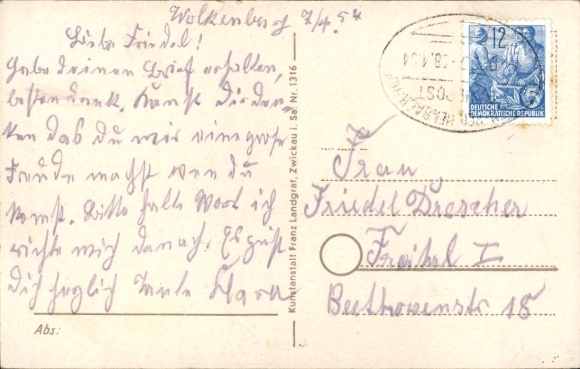 Wolkenburg 7/4. 54
Liebe Friedel!
Habe deinen Brief erhalten,
besten dank. Kanst dir den-
ken das du mir eine grose
Freude machst wen du
komst. Bitte halte Wort ich
richte mich danach. Es grüst
dich herzlich Tante Klara
Abs:
Kunstanstalt Franz Landgraf, Zwickau i. Sa. Nr. 1316
12
DEUTSCHE
DEMOKRATISCHE REPUBLIK
POST
Frau
Friedel Drescher
Freital I
Beethovenstr 18